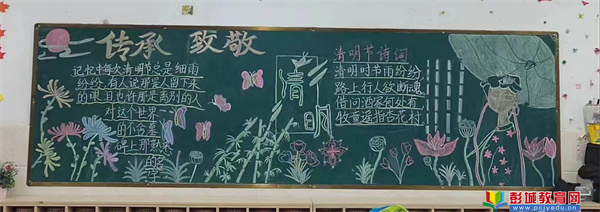 传承 致敬
记忆中每次清明节总是细雨
纷纷,有人说那是人们下来
的眼目也许那是离别的人
对这个世界一
的个念是
碑上那热
的字
清明
清明节诗词
清明时节雨纷纷
路上行人欲断魂
借问酒家何处有
牧童遥指杏花村
彭城教育网
www.pcjyedu.cn